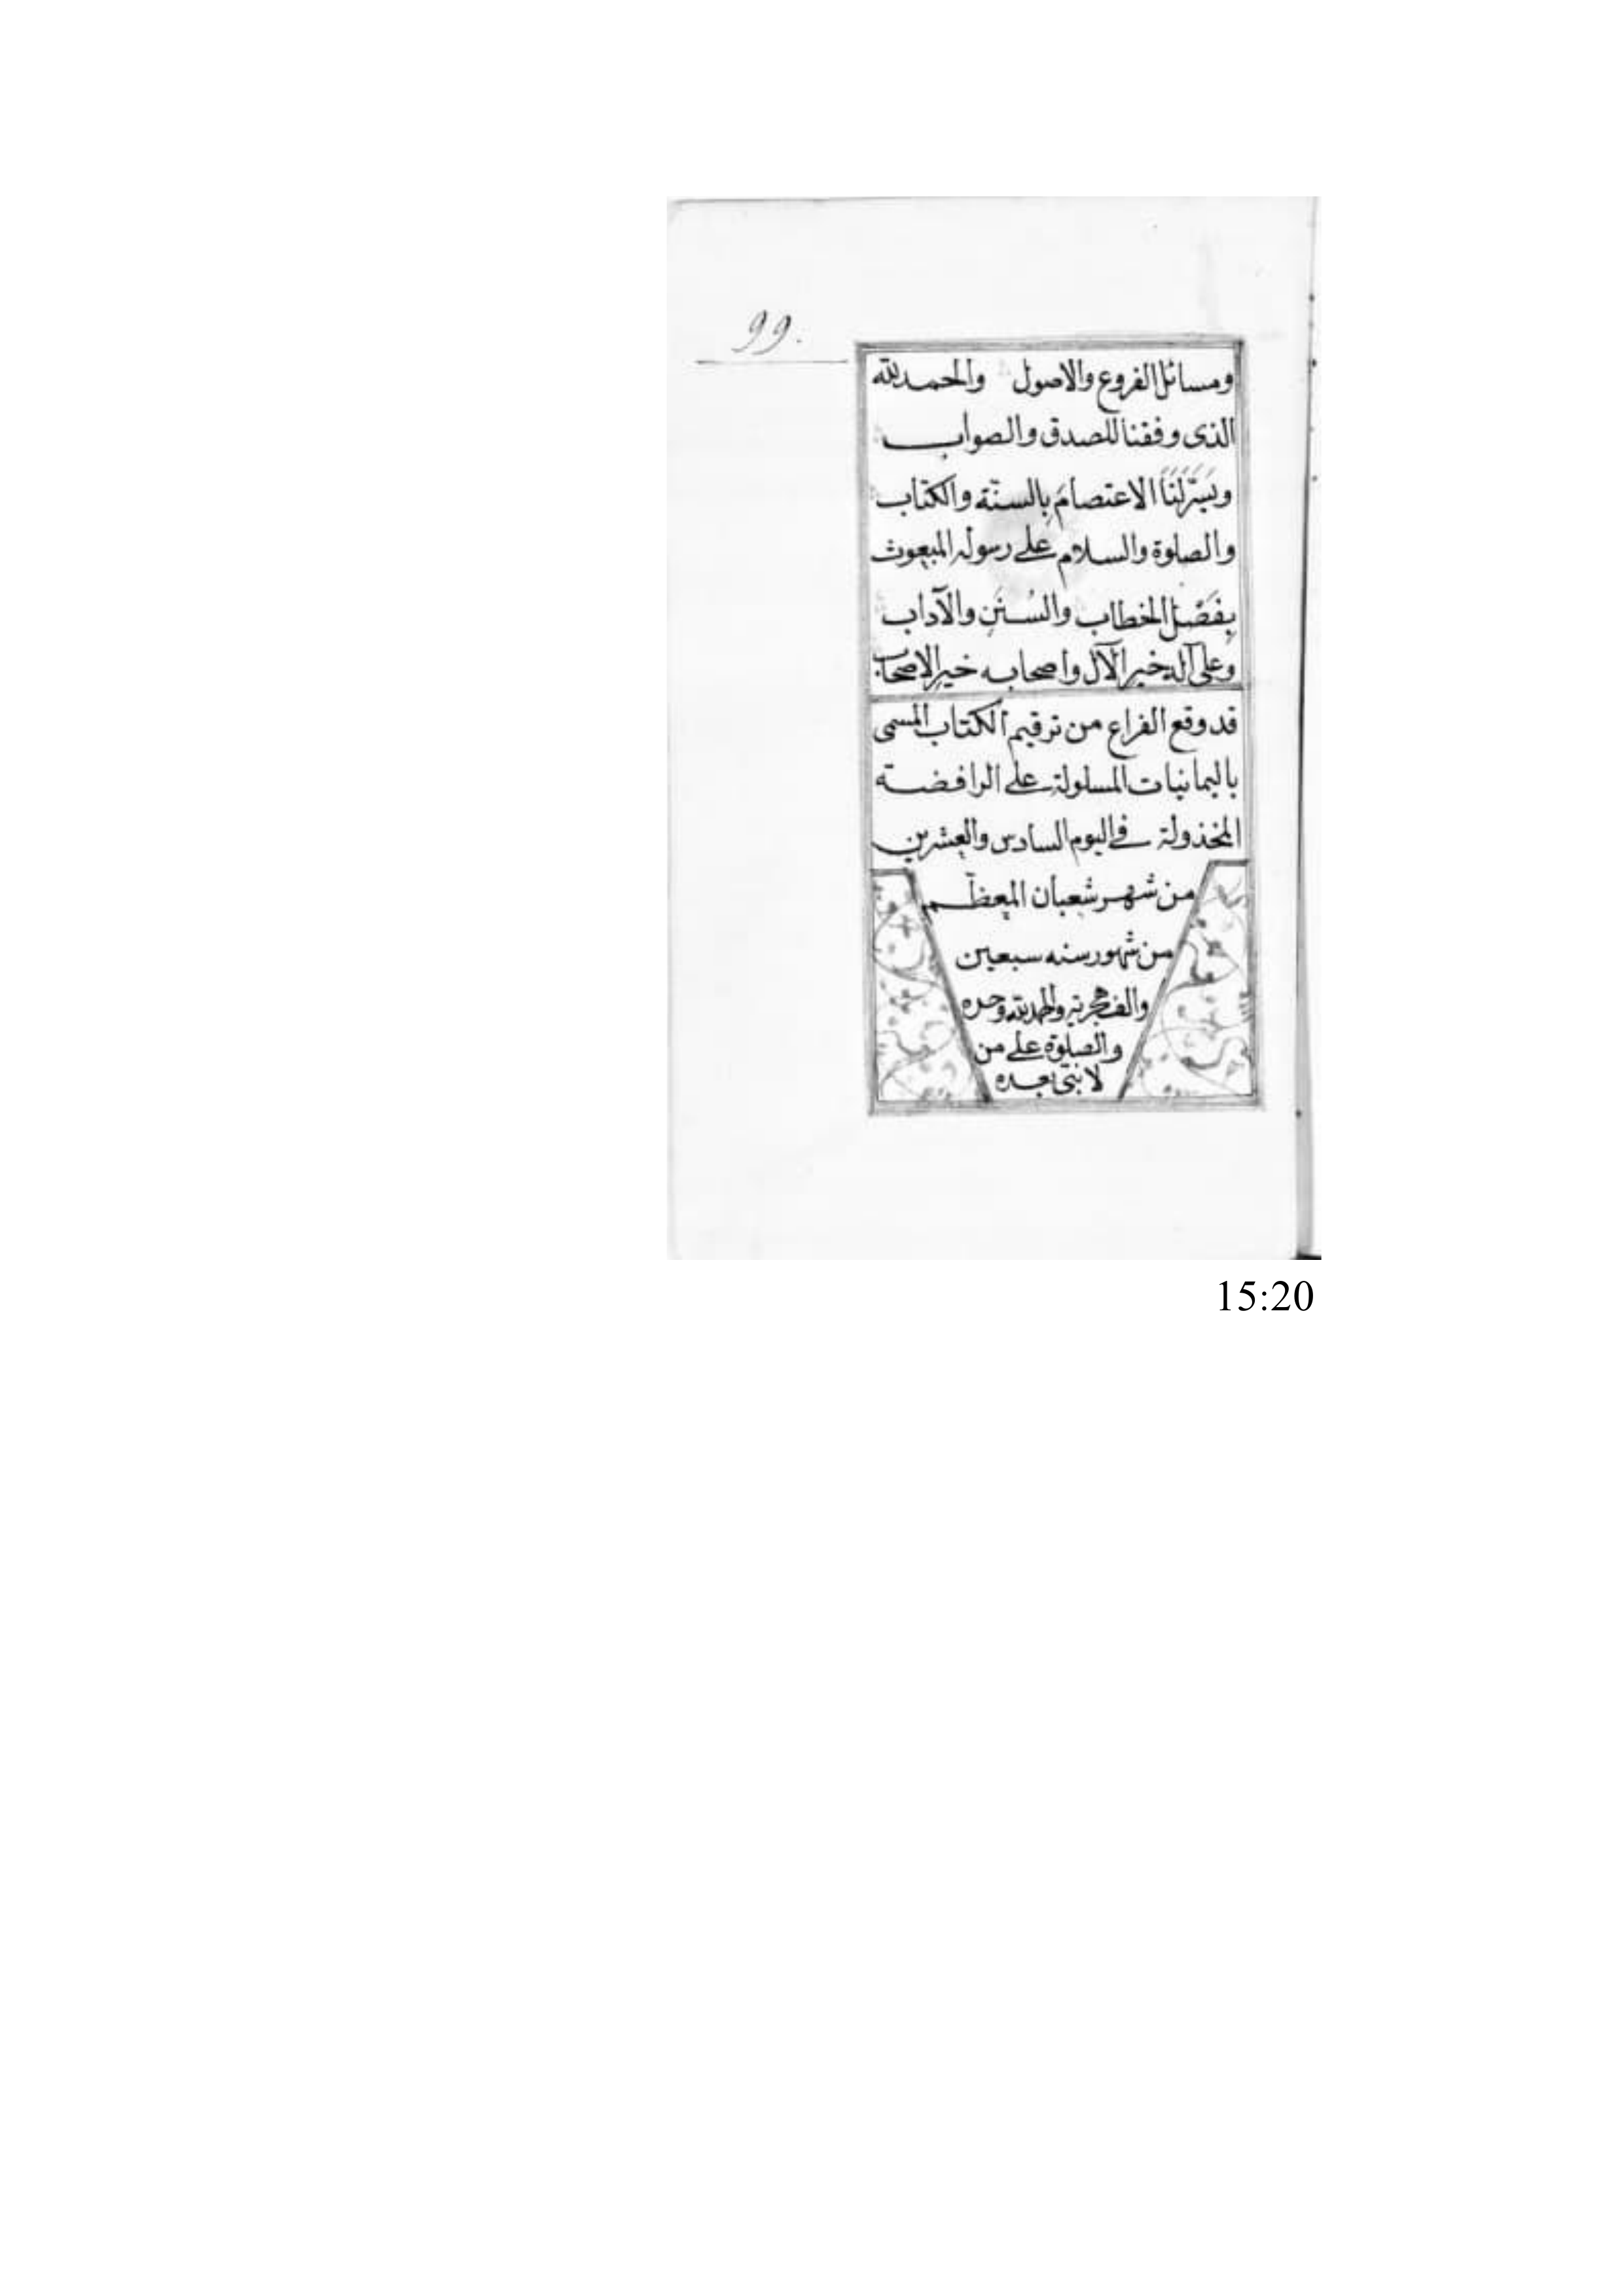 99.
ومسائل الفروع والاصول والحمد لله
الذى وفقنا للصدق والصواب
ويَسَّرَ لَنَا الاعتصامَ بِالسنّة والكتاب
والصلوة والسلام على رسوله المبعوث
بِفَصْل الخطاب والسُنَنِ والآداب
وعلى آله خير الآل واصحابه خير الاصحاب
قد وقع الفراغ من ترقيم الكتاب المسمى
باليمانيات المسلولة على الرافضة
المخذولة فى اليوم السادس والعشرين
من شهر شعبان المعظّم
من شهور سنه سبعين
والف هجرية والحمد لله وحده
والصلوة على من
لا نبيّ بعده
15:20